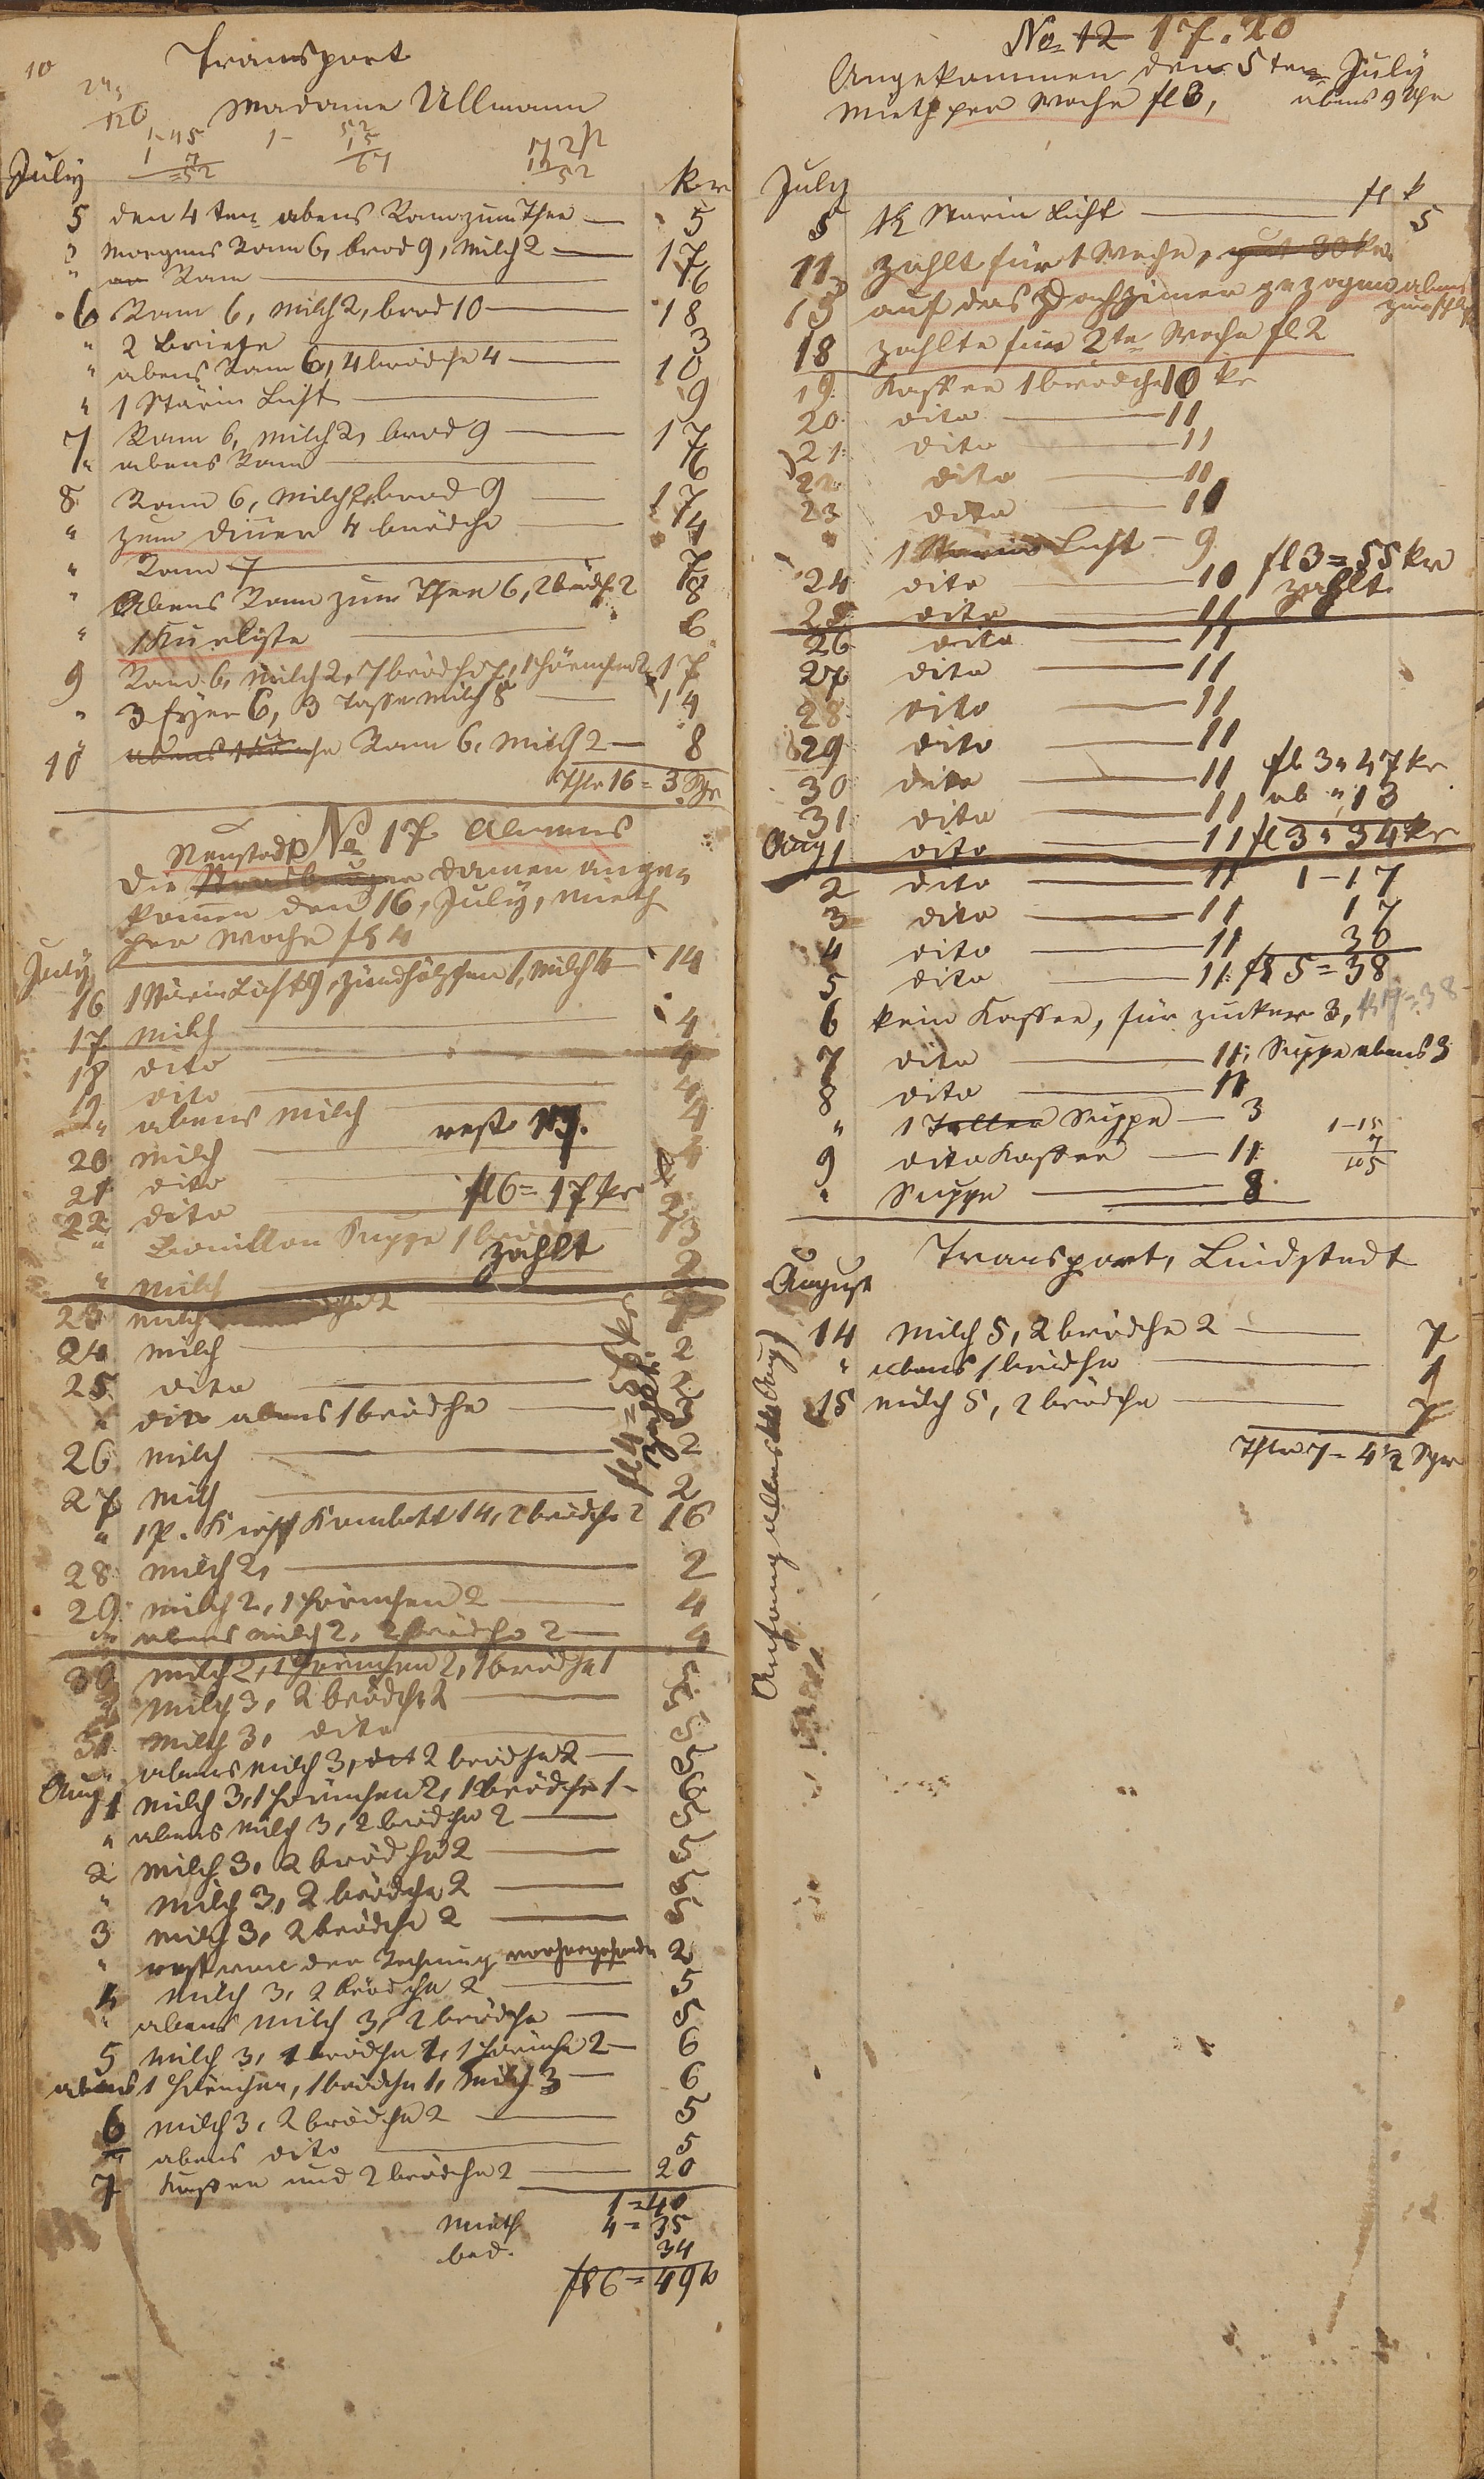 10
Transport
Madame Ullmann
July
kr
5 den 4 ten abens Ram zum Thee — 5
" Morgens Ram 6, brod 9, Milch 2 — 17
" Ram — 6
6 Ram 6, Milch 2, brod 10 — 18
" 2 Briefe — 3
" abens Ram 6, 4 brödche 4 — 10
" 1 Stärin Licht — 9
7 Ram 6, Milch 2, brod 9 — 17
" abens Ram — 6
8 Ram 6, Milch 2, brod 9 — 17
" zum Diner 4 brödche — 4
" Ram 7 — 7
" Abens Ram zum Thee 6, 2 brödch 2 8
" 1 Kurliste — 6
9 Ram 6, Milch 2, 7 brödche 7, 1 hörnchen 2 17
" 3 Eyer 6, 3 Tasse Milch 8 — 14
10 Ram 6, Milch 2 — 8
Thlr 16 = 3 Sgr
No 17 Alwens
Neustadt
die Damen ange-
kommen den 16, July, Mieth
per Woche fl 4
July
16 1 Stärin Licht 9, Zündhölzchen 1, Milch 4 — 14
17 Milch — 4
18 dito — 4
19 dito — 4
" abens Milch — 4
rest 17.
20 Milch — 4
21 dito
fl 6 = 17 kr
22 dito — 2
" Bouillon Suppe 1 brödche 13
zahlt
" Milch 2
23 Milch
24 Milch — 2
25 dito — 2
" dito abens 1 brödche — 3
26 Milch — 2
27 Milch — 2
zahlt
" 1 P. Kirsch Kombott 14, 2 brödche 2 16
28 Milch 2, — 2
29 Milch 2, 1 hörnchen 2 — 4
" abens Milch 2, 2 brödche 2 — 4
30 Milch 2, 1 hörnchen 2, 1 brödche 1 5
" Milch 3, 2 brödche 2 — 5
31 Milch 3, dito — 5
" abens Milch 3, 2 brödche 2 — 5
Aug 1 Milch 3, 1 hörnchen 2, 1 brödche 1 — 6
" abens Milch 3, 2 brödche 2 — 5
2 Milch 3, 2 brödche 2 — 5
" Milch 3, 2 brödche 2 — 5
3 Milch 3, 2 brödche 2 — 5
" rest von der Rechnung 2
4 Milch 3, 2 brödche 2 — 5
" abens Milch 3, 2 brödche — 5
5 Milch 3, 1 brödche 1, 1 hörnche 2 — 6
abens 1 hörnchen, 1 brödche 1, Milch 3 — 6
6 Milch 3, 2 brödche 2 — 5
" abens dito — 5
7 Kaffee und 2 brödche 2 — 20
1 = 40
Mieth 4 = 35
bed. 34
fl 6 = 49 kr
No 12 17. 20
Angekommen den 5 ten July
abens 9 Uhr
Mieth per Woche fl 3,
July
fl k
5 1/2 Starin Licht — 5
11 zahlt für 1 Woche, gut 30 kr
13 auf das Dachzimer gezogen abens
18 zahlte für 2te Woche fl 2
19 Kaffee 1 brödche 10 kr
20 dito — 11
21 dito — 11
22 dito — 11
23 dito — 11
" 1 Starin Licht — 9
24 dito — 10 fl 3 = 55 kr
zahlt
25 dito — 11
26 dito — 11
27 dito — 11
28 dito — 11
29 dito — 11
30 dito — 11 fl 3 " 47 kr
31 dito — 11 ab " 13
Aug 1 dito — 11 fl 3 " 34 kr
2 dito — 11 1 - 17
3 dito — 11 17
4 dito — 11 36
5 dito — 11. fl 5 = 38
6 kein Kaffee, für Zucker 3,
7 dito — 11, Suppe abens 3
8 dito — 11
" 1 Teller Suppe — 3
9 dito Kaffee — 11
" Suppe — 8
Transport, Lindstedt
August
14 Milch 5, 2 brödche 2 — 7
" abens 1 brödche — 1
15 Milch 5, 2 brödche — 7
Thlr 7 = 4 1/2 Sgr